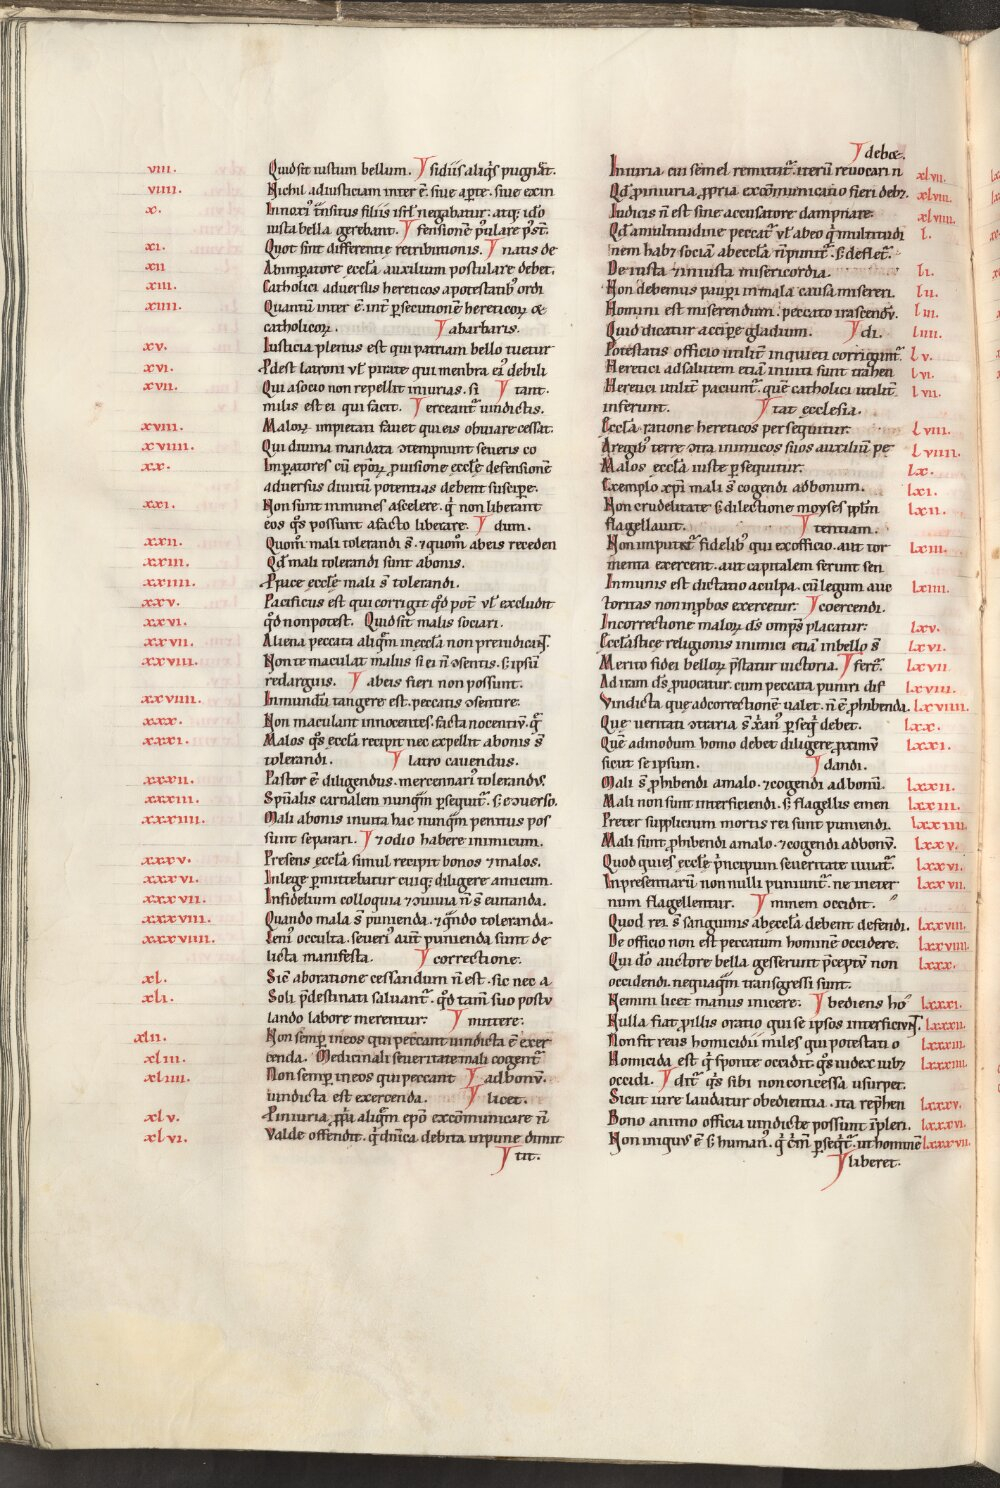 viii. Quid sit iustum bellum. sidiis aliq̾s pugnat.
viiii. Nichil adiusticiam inter ē. siue aperte. siue ex in
x. Innoxi᷒ tr̄nsitus filiis isrl̄ negabatur. atq; ido
iusta bella gerebant. fensionē postulare pōst.
xi. Quot sint differentie retributionis. natis de
xii Abimperatore eccl̄a auxilium postulare debet.
xiii. Catholici aduersus hereticos apotestatib᷒ ordi
xiiii. Quantū inter ē. int̄ persecutionē hereticoꝝ &
catholicoꝝ. abarbaris.
xv. Iusticia plenus est qui patriam bello tuetur
xvi. Pdest latroni vl̄ pirate qui menbra ei᷒ debili
xvii. Qui asocio non repellit iniurias. si tant.
milis est ei qui facit. erceant᷑ uindictis.
xviii. Maloꝝ impietati fauet qui eis obuiare cessat.
xviiii. Qui diuina mandata ɔtempnunt seueris co
xx. Imꝑatores cū epōꝝ puisione eccl̄e defensionē
aduersus diuitū potentias debent suscipe.
xxi. Non sunt inmunes ascelere. q̄ non liberant
eos q̄s possunt afacto liberare. dum.
xxii. Quom̄ mali tolerandi s̄. ⁊ quom̄ abeis receden
xxiii. Qd̄ mali tolerandi sunt abonis.
xxiiii. Ppace eccl̄e mali s̄ tolerandi.
xxv. Pacificus est qui corrigit qd̄ pot̄ vl̄ excludit
xxvi. qd̄ non potest. Quid sit malis sociari.
xxvii. Aliena peccata aliq̄m ineccl̄a non preiudicāt.
xxviii. Non te maculat malus si ei n̄ ɔsentis. s; ipsū
redarguis. abeis fieri non possunt.
xxviiii. Inmundū tangere est. peccatis ɔsentire.
xxx. Non maculant innocentes. facta nocentiū. q̄
xxxi. Malos q̄s eccl̄a recipit nec expellit abonis s̄
tolerandi. latro cauendus.
xxxii. Pastor ē diligendus. mercennari᷒ tolerand᷒.
xxxiii. Spūalis carnalem nunq̄m ꝑsequit᷑. s; econuerso.
xxxiiii. Mali abonis inuita hac nunq̄m penitus pos
sunt separari. ⁊ odio habere inimicum.
xxxv. Presens eccl̄a simul recipit bonos ⁊ malos.
xxxvi. Inlege ꝑmittebatur cuiq; diligere amicum.
xxxvii. Infidelium colloquia ⁊ ɔuiuia n̄ s̄ euitanda.
xxxviii. Quando mala s̄ punienda. ⁊ qn̄do toleranda.
xxxviiii. Leni᷒ occulta. seueri᷒ aut̄ punienda sunt de
licta manifesta. correctione.
xl. Sic̄ aboratione cessandum n̄ est. sic nec a
xli. Soli p̄destinati saluant᷑. qd̄ tam̄ suo postu
lando labore merentur. mittere.
xlii. Non semꝑ ineos qui peccant uindicta ē exer
xliii. cenda. Medicinali seueritate mali cogent᷑
xliiii. Non semꝑ in eos qui peccant ad bonū.
uindicta est exercenda. licet.
xlv. Piniuria ꝓp̄a aliq̄m epō excōmunicare n̄
xlvi. Valde offendit. q̄ dn̄ica debita inpune dimit
tit.
debet.
Iniuria cui semel remittit᷑. iterū reuocari n̄ xlvii.
Qd̄ ꝓiniuria ꝓpria excōmunicatio fieri deb;. xlviii.
Iudicis n̄ est sine accusatore dampnare. xlviiii.
Qd̄ amultitudine peccat᷑ vl̄ abeo q̄ multitudi l.
nem hab; sociā abeccl̄a n̄ punit᷑. s; deflet᷑.
De iusta ⁊ iniusta misericordia. li.
Non debemus pauꝑi inmala causa misereri. lii.
Homini est miserendum. peccato irascendū. liii.
Quid dicatur accipe gladium. di. liiii.
Potestatis officio utilit̄ inquieti corrigunt᷑. lv.
Heretici adsalutem etiā inuiti sunt trahen lvi.
Heretici utilit̄ paciunt᷑. que catholici utilit̄ lvii.
inferunt. tat ecclesia.
Eccl̄a ratione hereticos persequitur. lviii.
Aregib᷒ terre ɔtra inimicos suos auxiliū pe lviiii.
Malos eccl̄a iuste ꝑsequitur. lx.
Exemplo xp̄i mali s̄ cogendi adbonum. lxi.
Non crudelitate s; dilectione moyses ppl̄m lxii.
flagellauit. tentiam.
Non imputat᷑ fidelib᷒ qui exofficio. aut tor lxiii.
menta exercent. aut capitalem ferunt sen
Inmunis est dictatio aculpa. cū legum auc lxiiii.
toritas non inpbos exercetur. coercendi.
Incorrectione maloꝝ ds̄ omp̄s placatur. lxv.
Eccl̄astice religionis inimici etiā inbello s̄ lxvi.
Merito fidei belloꝝ p̄statur uictoria. fert᷑. lxvii.
Ad iram ds̄ ꝓuocatur. cum peccata puniri dif lxviii.
Vindicta que adcorrectionē ualet. n̄ ē ꝓhibenda. lxviiii.
Que ueritati ɔtraria s̄ xr̄an᷒ ꝑseq̄ debet. lxx.
Quē admodum homo debet diligere ꝓximū lxxi.
sicut se ipsum. dandi.
Mali s̄ ꝓhibendi amalo. ⁊ cogendi ad bonū. lxxii.
Mali non sunt interficiendi. s; flagellis emen lxxiii.
Preter supplicium mortis rei sunt puniendi. lxxiiii.
Mali sunt ꝓhibendi amalo. ⁊ cogendi adbonū. lxxv.
Quod quies eccl̄e p̄ncipum seueritate iuuat᷑. lxxvi.
Inpresentiarū nonnulli puniunt᷑. ne ineter lxxvii.
num flagellentur. minem occidit.
Quod rei s̄ sanguinis abeccl̄a debent defendi. lxxviii.
De officio non est peccatum hominē occidere. lxxviiii.
Qui do᷒ auctore bella gesserunt p̄ceptū non lxxx.
occidendi. nequaq̄m transgressi sunt.
Nemini licet manus inicere. bediens ho᷒ lxxxi.
Nulla fiat ꝓillis oratio qui se ipsos interficiūt. lxxxii.
Non fit reus homicidii miles qui potestati o lxxxiii.
Homicida est q̄ sponte occidit q̄s iudex iub; lxxxiiii.
occidi. dit᷑ q̄s sibi non concessa usurpet.
Sicut iure laudatur obedientia. ita rep̄hen lxxxv.
Bono animo officia uindicte possunt īpleri. lxxxvi.
Non iniqu᷒ ē s; human᷒. q̄ c̄m̄ ꝑseq̄t᷑. ut hominē lxxxvii.
liberet.